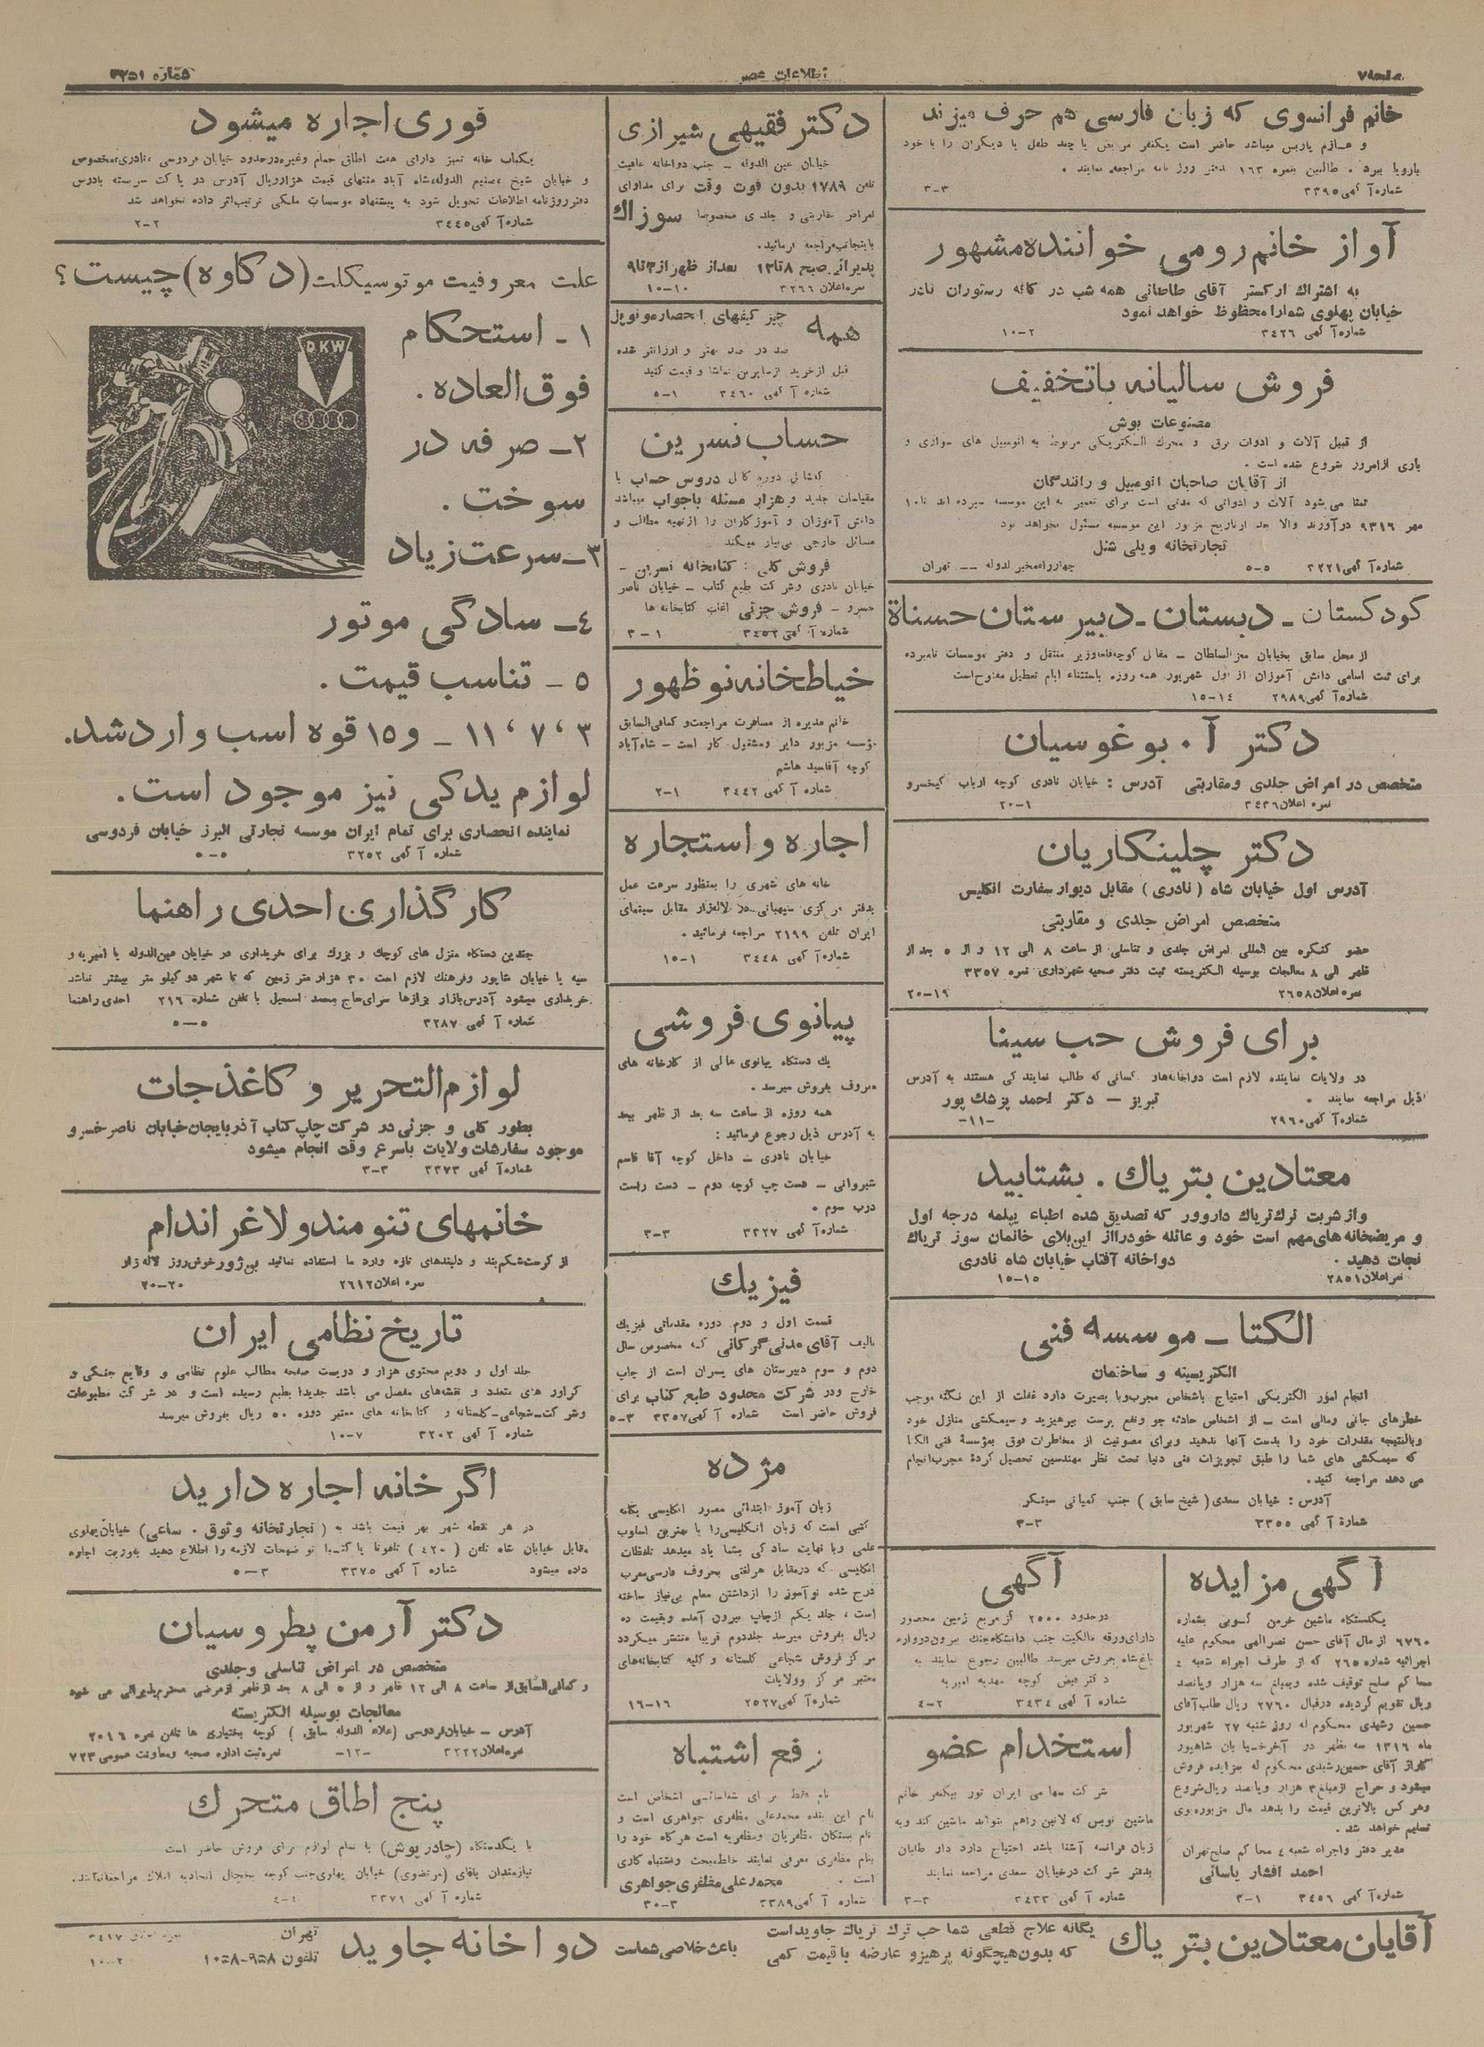 صفحه ۷
اطلاعات عصر
شماره ۳۲۵۱
خانم فرانسوی که زبان فارسی هم حرف میزند
و عازم پاریس میباشد حاضر است یکنفر مریض یا چند طفل یا دیگران را با خود
باروپا ببرد . طالبین بنمره ۱۶۳ بدفتر روز نامه مراجعه نمایند .
شماره آگهی ۳۳۹۵ ۳-۳
آواز خانم رومی خواننده مشهور
به اشتراك ارکستر آقای طاطائی همه شب در کافه رستوران نادر
خیابان پهلوی شمارا محظوظ خواهد نمود
شماره آگهی ۳۴۲۶ ۲-۱۰
فروش سالیانه باتخفیف
مصنوعات بوش
از قبیل آلات و ادوات برق و محرك الکتریکی مربوط به اتومبیل های سواری و
باری ازامروز شروع شده است .
از آقایان صاحبان اتومبیل و رانندگان
تمنا می شود آلات و ادواتی که مدتی است برای تعمیر به این موسسه سپرده اند تا ۱۰
مهر ۹۳۱۶ درآورند والا بعد ازتاریخ مزبور این موسسه مسئول نخواهد بود
تجارتخانه ویلی شنل
چهارراه مخبرالدوله -- تهران
شماره آگهی ۳۲۲۱ ۵-۵
کودکستان - دبستان - دبیرستان حسناة
از محل سابق بخیابان معزالسلطان - مقابل کوچه قامه‌وزیر منتقل و دفتر موسسات نامبرده
برای ثبت اسامی دانش آموزان از اول شهریور همه روزه باستثناء ایام تعطیل مفتوح است
شماره آگهی ۲۹۸۹ ۱۴-۱۵
دکتر آ . بوغوسیان
متخصص در امراض جلدی و مقاربتی آدرس : خیابان نادری کوچه ارباب کیخسرو
نمره اعلان ۳۴۳۶ ۱-۲۰
دکتر چلینگاریان
آدرس اول خیابان شاه ( نادری ) مقابل دیوار سفارت انگلیس
متخصص امراض جلدی و مقاربتی
عضو کنگره بین المللی امراض جلدی و تناسلی از ساعت ۸ الی ۱۲ و از ۵ بعد از
ظهر الی ۸ معالجات بوسیله الکتریسته ثبت دفتر صحیه شهرداری نمره ۳۳۵۷
نمره اعلان ۲۶۵۸ ۱۹-۲۰
برای فروش حب سینا
در ولایات نماینده لازم است دواخانه‌ها و کسانی که طالب نمایندگی هستند به آدرس
ذیل مراجعه نمایند . تبریز - دکتر احمد پزشك پور
شماره آگهی ۲۹۶۰ -۱۱-
معتادین بتریاك . بشتابید
واز شربت ترك تریاك داروور که تصدیق شده اطباء دیپلمه درجه اول
و مریضخانه های مهم است خود و عائله خودرا از این بلای خانمان سوز تریاك
نجات دهید . دواخانه آفتاب خیابان شاه نادری
نمره اعلان ۲۸۵۱ ۱۵-۱۵
الکتا - موسسه فنی
الکتریسیته و ساختمان
انجام امور الکتریکی احتیاج باشخاص مجرب و با بصیرت دارد غفلت از این نکته موجب
خطرهای جانی و مالی است - از اشخاص حادثه جو و نفع پرست بپرهیزید و سیمکشی منازل خود
و بالنتیجه مقدرات خود را بدست آنها ندهید و برای مصونیت از مخاطرات فوق بمؤسسهٔ فنی الکتا
که سیمکشی های شما را طبق تجویزات فنی دنیا تحت نظر مهندسین تحصیل کردهٔ مجرب انجام
می دهد مراجعه کنید .
آدرس : خیابان سعدی ( شیخ سابق ) جنب کمپانی سینگر
شماره آگهی ۳۳۵۵ ۳-۳
آگهی مزایده
یکدستگاه ماشین خرمن کوبی بشماره
۶۷۶۰ از مال آقای حسن نصرالهی محکوم علیه
اجرائیه شماره ۲۶۵ که از طرف اجراء شعبه ۴
محاکم صلح توقیف شده و بمبلغ سه هزار و پانصد
ریال تقویم گردیده درقبال ۲۷۶۰ ریال طلب آقای
حسین رشیدی محکوم له روز شنبه ۲۷ شهریور
ماه ۱۳۱۶ سه بظهر در آخر خیابان شاهپور
گاراژ آقای حسین رشیدی محکوم له بمزایده فروش
میشود و حراج ازمبلغ ۳ هزار و پانصد ریال شروع
وهر کس بالاترین قیمت را بدهد مال مزبور بوی
تسلیم خواهد شد .
مدیر دفتر و اجراء شعبه ۴ محاکم صلح تهران
احمد افشار یاسائی
شماره آگهی ۳۴۵۶ ۱-۳
آگهی
درحدود ۲۵۰۰ گز مربع زمین محصور
دارای ورقه مالکیت جنب دانشگاه جنك بیرون دروازه
باغشاه بفروش میرسد طالبین رجوع نمایند به
دکتر فیض کوچه مهدیه امیریه
شماره آگهی ۳۴۳۴ ۲-۴
استخدام عضو
شرکت سهامی ایران تور بیکنفر خانم
ماشین نویس که لاتین راهم بتواند ماشین کند و به
زبان فرانسه آشنا باشد احتیاج دارد داوطلبان
بدفتر شرکت درخیابان سعدی مراجعه نمایند
شماره آگهی ۳۴۳۳ ۲-۳
دکتر فقیهی شیرازی
خیابان عین الدوله - جنب دواخانه عافیت
تلفن ۱۷۸۹ بدون فوت وقت برای مداوای
امراض مقاربتی و جلدی مخصوصا سوزاك
باینجانب مراجعه فرمائید.
پذیرائی صبح ۸ تا ۱۲ بعد از ظهر از ۳ تا ۹
نمره اعلان ۳۲۶۶ ۱۰-۱۰
همه
چیز کیفهای انحصار مونوپل
صد در صد بهتر و ارزانتر شده
قبل از خرید از سایرین تماشا و قیمت کنید
شماره آگهی ۳۴۶۰ ۱-۵
حساب نسرین
دوره کامل دروس حساب با
مقیاسات جدید و هزار مسئله باجواب میباشد
دانش آموزان و آموزگاران را ازتهیه مطالب و
مسائل خارجی بی‌نیاز میکند
فروش کلی : کتابخانه نسرین -
خیابان نادری و شرکت طبع کتاب - خیابان ناصر
خسرو - فروش جزئی اغلب کتابخانه ها
شماره آگهی ۳۴۵۲ ۱-۳
خیاطخانه نوظهور
خانم مدیره از مسافرت مراجعت و کمافی‌السابق
مؤسسه مزبور دایر و مشغول کار است - شاه‌آباد
کوچه آقاسید هاشم
شماره آگهی ۳۴۴۲ ۱-۲
اجاره و استجاره
خانه های شهری را بمنظور سرعت عمل
بدفتر مرکزی سپهبانی در لاله‌زار مقابل سینمای
ایران تلفن ۲۱۹۹ مراجعه فرمائید .
شماره آگهی ۳۴۴۸ ۱-۱۵
پیانوی فروشی
یك دستگاه پیانوی عالی از کارخانه های
معروف بفروش میرسد .
همه روزه از ساعت سه بعد از ظهر ببعد
به آدرس ذیل رجوع فرمائید :
خیابان نادری - داخل کوچه آقا قاسم
شیروانی - دست چپ کوچه دوم - دست راست
درب سوم .
شماره آگهی ۳۳۲۷ ۳-۳
فیزیك
قسمت اول و دوم دوره مقدماتی فیزیك
تالیف آقای مدنی گرکانی که مخصوص سال
دوم و سوم دبیرستان های پسران است از چاپ
خارج ودر شرکت محدود طبع کتاب برای
فروش حاضر است شماره آگهی ۳۳۵۷ ۳-۵
مژده
زبان آموز ابتدائی مصور انگلیسی یگانه
کتبی است که زبان انگلیسی را با بهترین اسلوب
علمی و با نهایت سادگی بشما یاد میدهد تلفظات
انگلیسی که درمقابل هرلغتی بحروف فارسی معرب
درج شده نوآموز را ازداشتن معلم بی‌نیاز ساخته
است ، جلد یکم ازچاپ بیرون آمده و بقیمت ده
ریال بفروش میرسد جلد دوم قریبا منتشر میگردد
مرکز فروش شجاعی گلستانه و کلیه کتابخانه‌های
معتبر مرکز و ولایات
شماره آگهی ۲۵۲۷ ۱۶-۱۶
رفع اشتباه
نام فقط برای شناسائی اشخاص است
نام این بنده محمدعلی مظفری جواهری است و
نام بستگان مظفریان و مظفریه است هرگاه خود را
بنام مظفری معرفی نمایند غلط بحت و اشتباه کاری
است .
محمد علی مظفری جواهری
شماره آگهی ۳۳۸۹ ۳-۳۰
فوری اجاره میشود
یکباب خانه تمیز دارای هفت اطاق حمام وغیره درحدود خیابان فردوسی ، نادری ، مخصوص
و خیابان شیخ ، صنیع الدوله ، شاه آباد منتهای قیمت هزار ریال آدرس در پاکت سربسته بآدرس
دفتر روزنامه اطلاعات تحویل شود به پیشنهاد موسسات ملکی ترتیب اثر داده نخواهد شد
شماره آگهی ۳۴۴۵ ۲-۲
علت معروفیت موتوسیکلت (دکاوه) چیست؟
DKW
۱ - استحکام
فوق العاده .
۲ - صرفه در
سوخت .
۳ - سرعت زیاد
۴ - سادگی موتور
۵ - تناسب قیمت .
۳ ، ۷ ، ۱۱ - و ۱۵ قوه اسب وارد شد.
لوازم یدکی نیز موجود است.
نماینده انحصاری برای تمام ایران موسسه تجارتی البرز خیابان فردوسی
شماره آگهی ۳۲۵۲ ۵-۵
کارگذاری احدی راهنما
چندین دستگاه منزل های کوچك و بزرك برای خریداری در خیابان عین‌الدوله یا امیریه و
سپه یا خیابان شاپور وفرهنك لازم است ۳۰ هزار متر زمین که تا شهر دو کیلو متر بیشتر نباشد
خریداری میشود آدرس بازار بزازها سرای حاج محمد اسمعیل با تلفن شماره ۲۱۶ احدی راهنما
شماره آگهی ۳۲۸۷ ۵-۵
لوازم التحریر و کاغذجات
بطور کلی و جزئی در شرکت چاپ کتاب آذربایجان خیابان ناصر خسرو
موجود سفارشات ولایات باسرع وقت انجام میشود
شماره آگهی ۳۳۷۳ ۳-۳
خانمهای تنومند و لاغر اندام
از کرست شکم‌بند و دلبندهای تازه وارد ما استفاده نمائید بی‌ژور خوش‌روز لاله زار
نمره اعلان ۲۶۱۲ ۲۰-۲۰
تاریخ نظامی ایران
جلد اول و دویم محتوی هزار و دویست صفحه مطالب علوم نظامی و وقایع جنگی و
گراور های متعدد و نقشه‌های مفصل می باشد جدیدا بطبع رسیده است و در شرکت مطبوعات
وشرکت-شجاعی-گلستانه و کتابخانه های معتبر دوره ۵۰ ریال بفروش میرسد
شماره آگهی ۳۲۰۲ ۷-۱۰
اگر خانه اجاره دارید
در هر نقطه شهر بهر قیمت باشد به ( تجارتخانه وثوق . ساعی ) خیابان پهلوی
مقابل خیابان شاه تلفن ( ۴۲۰ ) تلفونا یا کتبا توضیحات لازمه را اطلاع دهید بفوریت اجاره
داده میشود شماره آگهی ۳۳۷۵ ۳-۵
دکتر آرمن پطروسیان
متخصص در امراض تناسلی و جلدی
و کمافی‌السابق از ساعت ۸ الی ۱۲ ظهر و از ۵ الی ۸ بعد ازظهر از مرضی محترم پذیرائی می شود
معالجات بوسیله الکتریسته
آدرس - خیابان فردوسی (علاء الدوله سابق ) کوچه بختیاری ها تلفن نمره ۲۰۱۶
نمره اعلان ۳۲۲۲ -۱۲- نمره ثبت اداره صحیه ومعاونت عمومی ۷۲۳
پنج اطاق متحرك
با یکدستگاه (چادرپوش) با تمام لوازم برای فروش حاضر است
نیازمندان بآقای (مرتضوی) خیابان پهلوی جنب کوچه یخچال اتحادیه املاك مراجعه نمایند.
شماره آگهی ۳۳۷۹ ۴-۴
آقایان معتادین بتریاك
یگانه علاج قطعی شما حب ترك تریاك جاوید است
که بدون هیچگونه پرهیز و عارضه با قیمت کمی
باعث خلاصی شماست
دواخانه جاوید
تهران
تلفون ۹۵۸-۱۰۵۸
۳۴۱۷
۲-۱۰